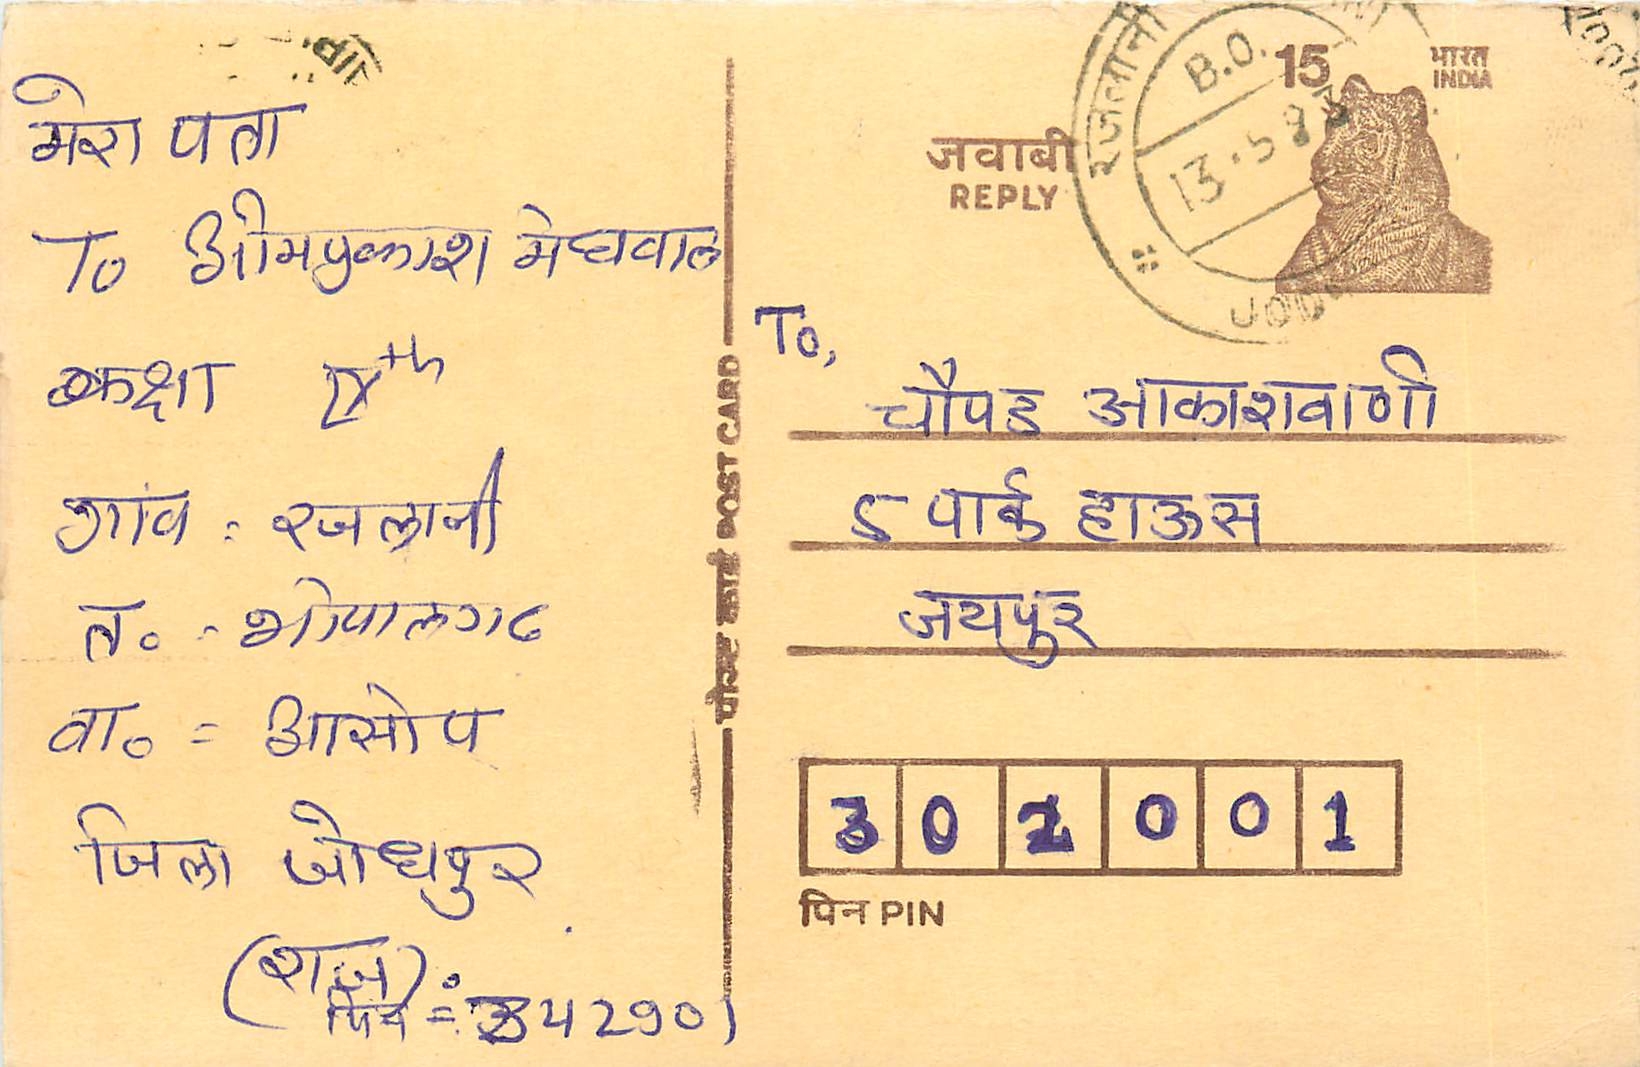 मेरा पता
To ओमप्रकाश मेघवाल
कक्षा IX th
गांव = रजलानी
त० = भोपालगढ
वा० = आसोप
जिला जोधपुर
(राज)
पिन = 342901
पोस्ट कार्ड POST CARD
जवाबी
REPLY
15
भारत
INDIA
रजलानी
B.O.
13.5.83
To,
चौपड आकाशवाणी
5 पार्क हाऊस
जयपुर
302001
पिन PIN